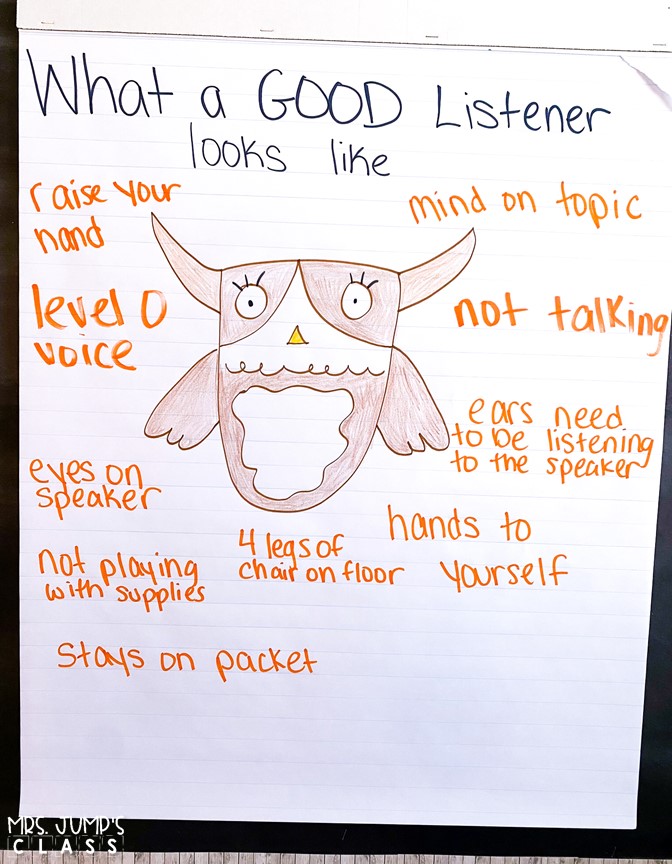 What a GOOD Listener
looks like
raise your
hand
mind on topic
level 0
voice
not talking
ears need
to be listening
to the speaker
eyes on
speaker
hands to
yourself
4 legs of
chair on floor
not playing
with supplies
stays on packet
MRS. JUMP'S
CLASS